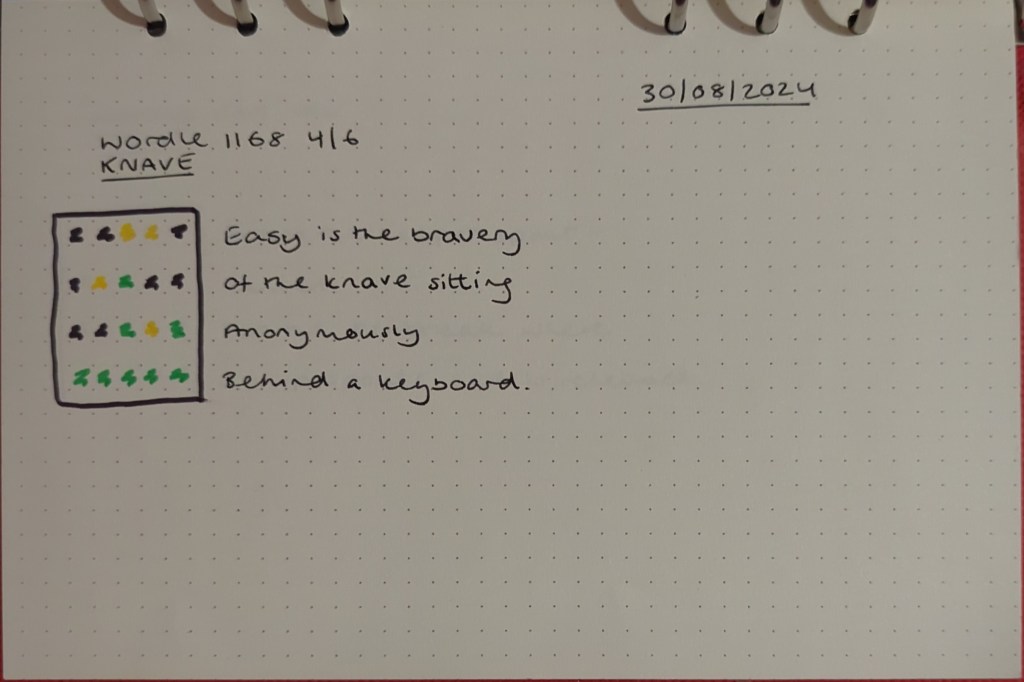 30/08/2024
Wordle 1168 4/6
KNAVE
Easy is the bravery
of the knave sitting
Anonymously
Behind a keyboard.